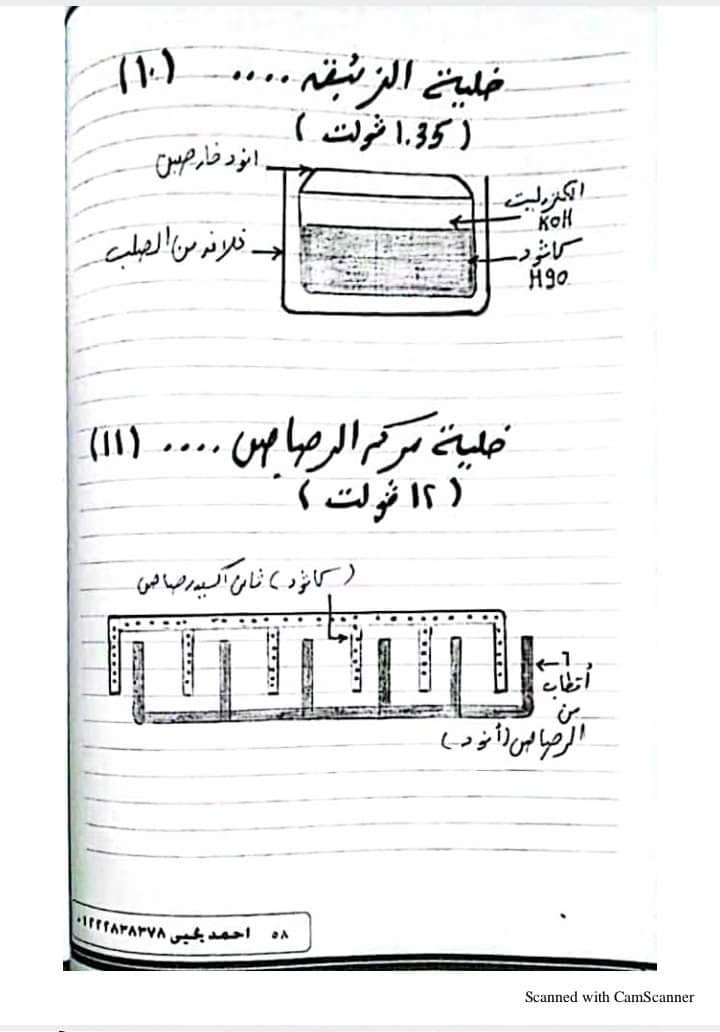 خلية الزئبق .... (١٠)
(1.35 ڤولت)
انود خارصين
الكتروليت
KOH
غلاف من الصلب
كاثود
HgO
خلية مركم الرصاص .... (١١)
(١٢ ڤولت)
(كاثود) ثانى اكسيد رصاص
٦
أقطاب
من
الرصاص (أنود)
٥٨ احمد يحيى ٠١٢٢٢٨٣٨٣٧٨
Scanned with CamScanner